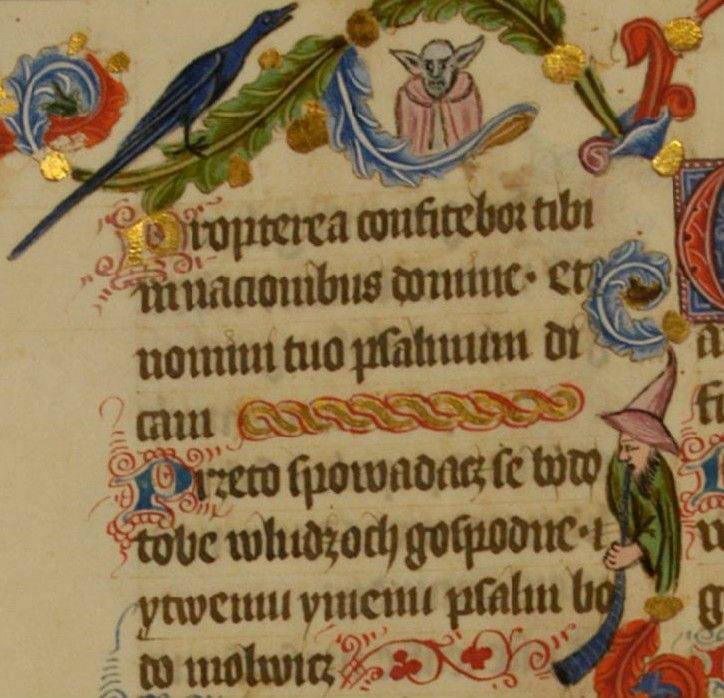 Propterea confitebor tibi
in nacionibus domine · et
nomini tuo psalmum di
cam
Przeto spowadacz se bødø
tobe w ludzoch gospodne · i
ytwemu ymenu psalm bø
dø molwicz